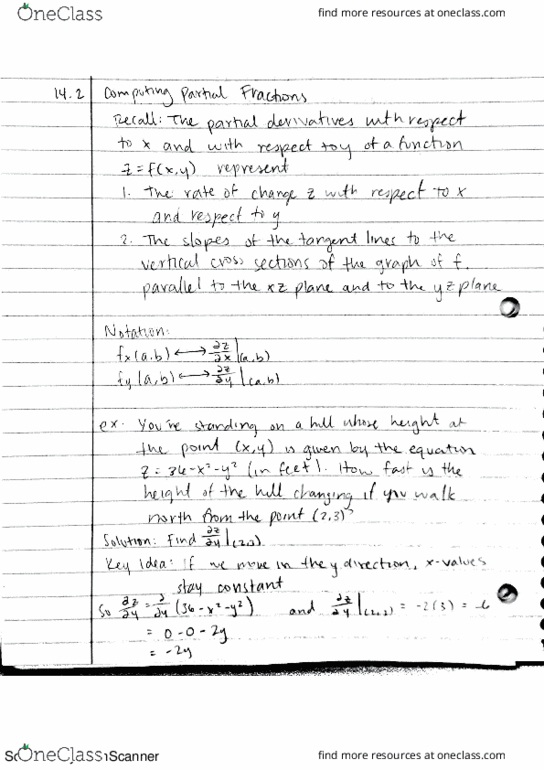 OneClass
find more resources at oneclass.com
14.2 Computing Partial Fractions
Recall: The partial derivatives with respect
to x and with respect to y of a function
z = f(x,y) represent
1. The rate of change z with respect to x
and respect to y
2. The slopes of the tangent lines to the
vertical cross sections of the graph of f.
parallel to the xz plane and to the yz plane
Notation:
fx(a,b) ⟷ ∂z/∂x |(a,b)
fy(a,b) ⟷ ∂z/∂y |(a,b)
ex. You're standing on a hill whose height at
the point (x,y) is given by the equation
z = 36-x²-y² (in feet). How fast is the
height of the hill changing if you walk
north from the point (2,3)?
Solution: Find ∂z/∂y |(2,3).
Key Idea: if we move in the y direction, x-values
stay constant
So ∂z/∂y = ∂/∂y (36-x²-y²) and ∂z/∂y |(2,3) = -2(3) = -6
= 0-0-2y
= -2y
Sc OneClass Scanner
find more resources at oneclass.com